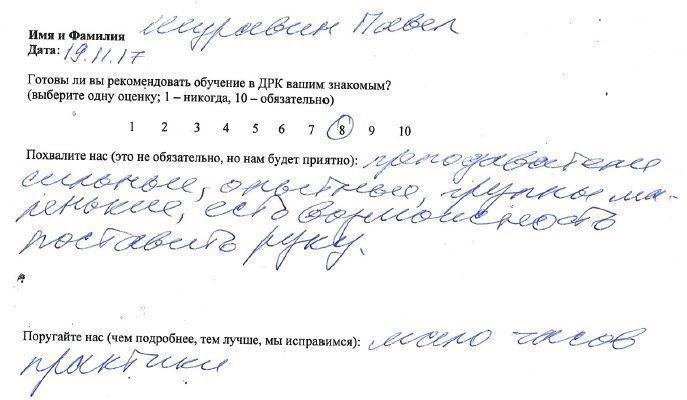 Имя и Фамилия Шуравин Павел
Дата: 19.11.17
Готовы ли вы рекомендовать обучение в ДРК вашим знакомым?
(выберите одну оценку; 1 – никогда, 10 – обязательно)
1 2 3 4 5 6 7 8 9 10
Похвалите нас (это не обязательно, но нам будет приятно): преподаватели
сильные, опытные, группы ма-
ленькие, есть возможность
поставить руку.
Поругайте нас (чем подробнее, тем лучше, мы исправимся): мало часов
практики